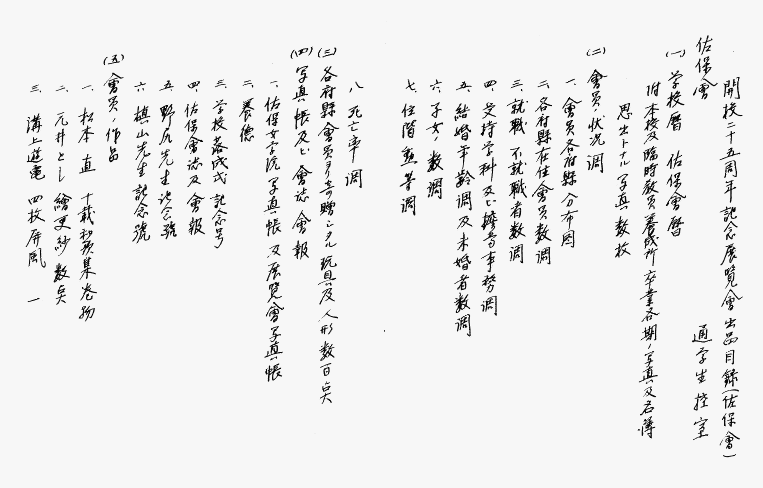 開校二十五周年記念展覧會出品目録(佐保會)
佐保會 通学生控室
(一) 学校暦 佐保會暦
附本校及臨時教員養成所卒業各期ノ写真及名簿
思出トナル写真数枚
(二) 會員ノ状況調
一、會員各府縣ノ分布図
二、各府縣在住會員数調
三、就職 不就職者数調
四、受持学科及ビ擔當事務調
五、結婚年齢調及未婚者数調
六、子女ノ数調
七、位階勲等調
八、死亡率調
(三) 各府縣會員ヨリ寄贈シタル玩具及人形数百点
(四) 写真帳及ビ會誌 會報
一、佐保女学院写真帳及展覧會写真帳
二、養德
三、学校落成式記念号
四、佐保會誌及會報
五、野尻先生記念號
六、槙山先生記念號
(五) 會員ノ作品
一、松本 直 十裁 集巻物
二、元井とし 繪更紗数点
三、溝上遊亀 四枚屏風 一